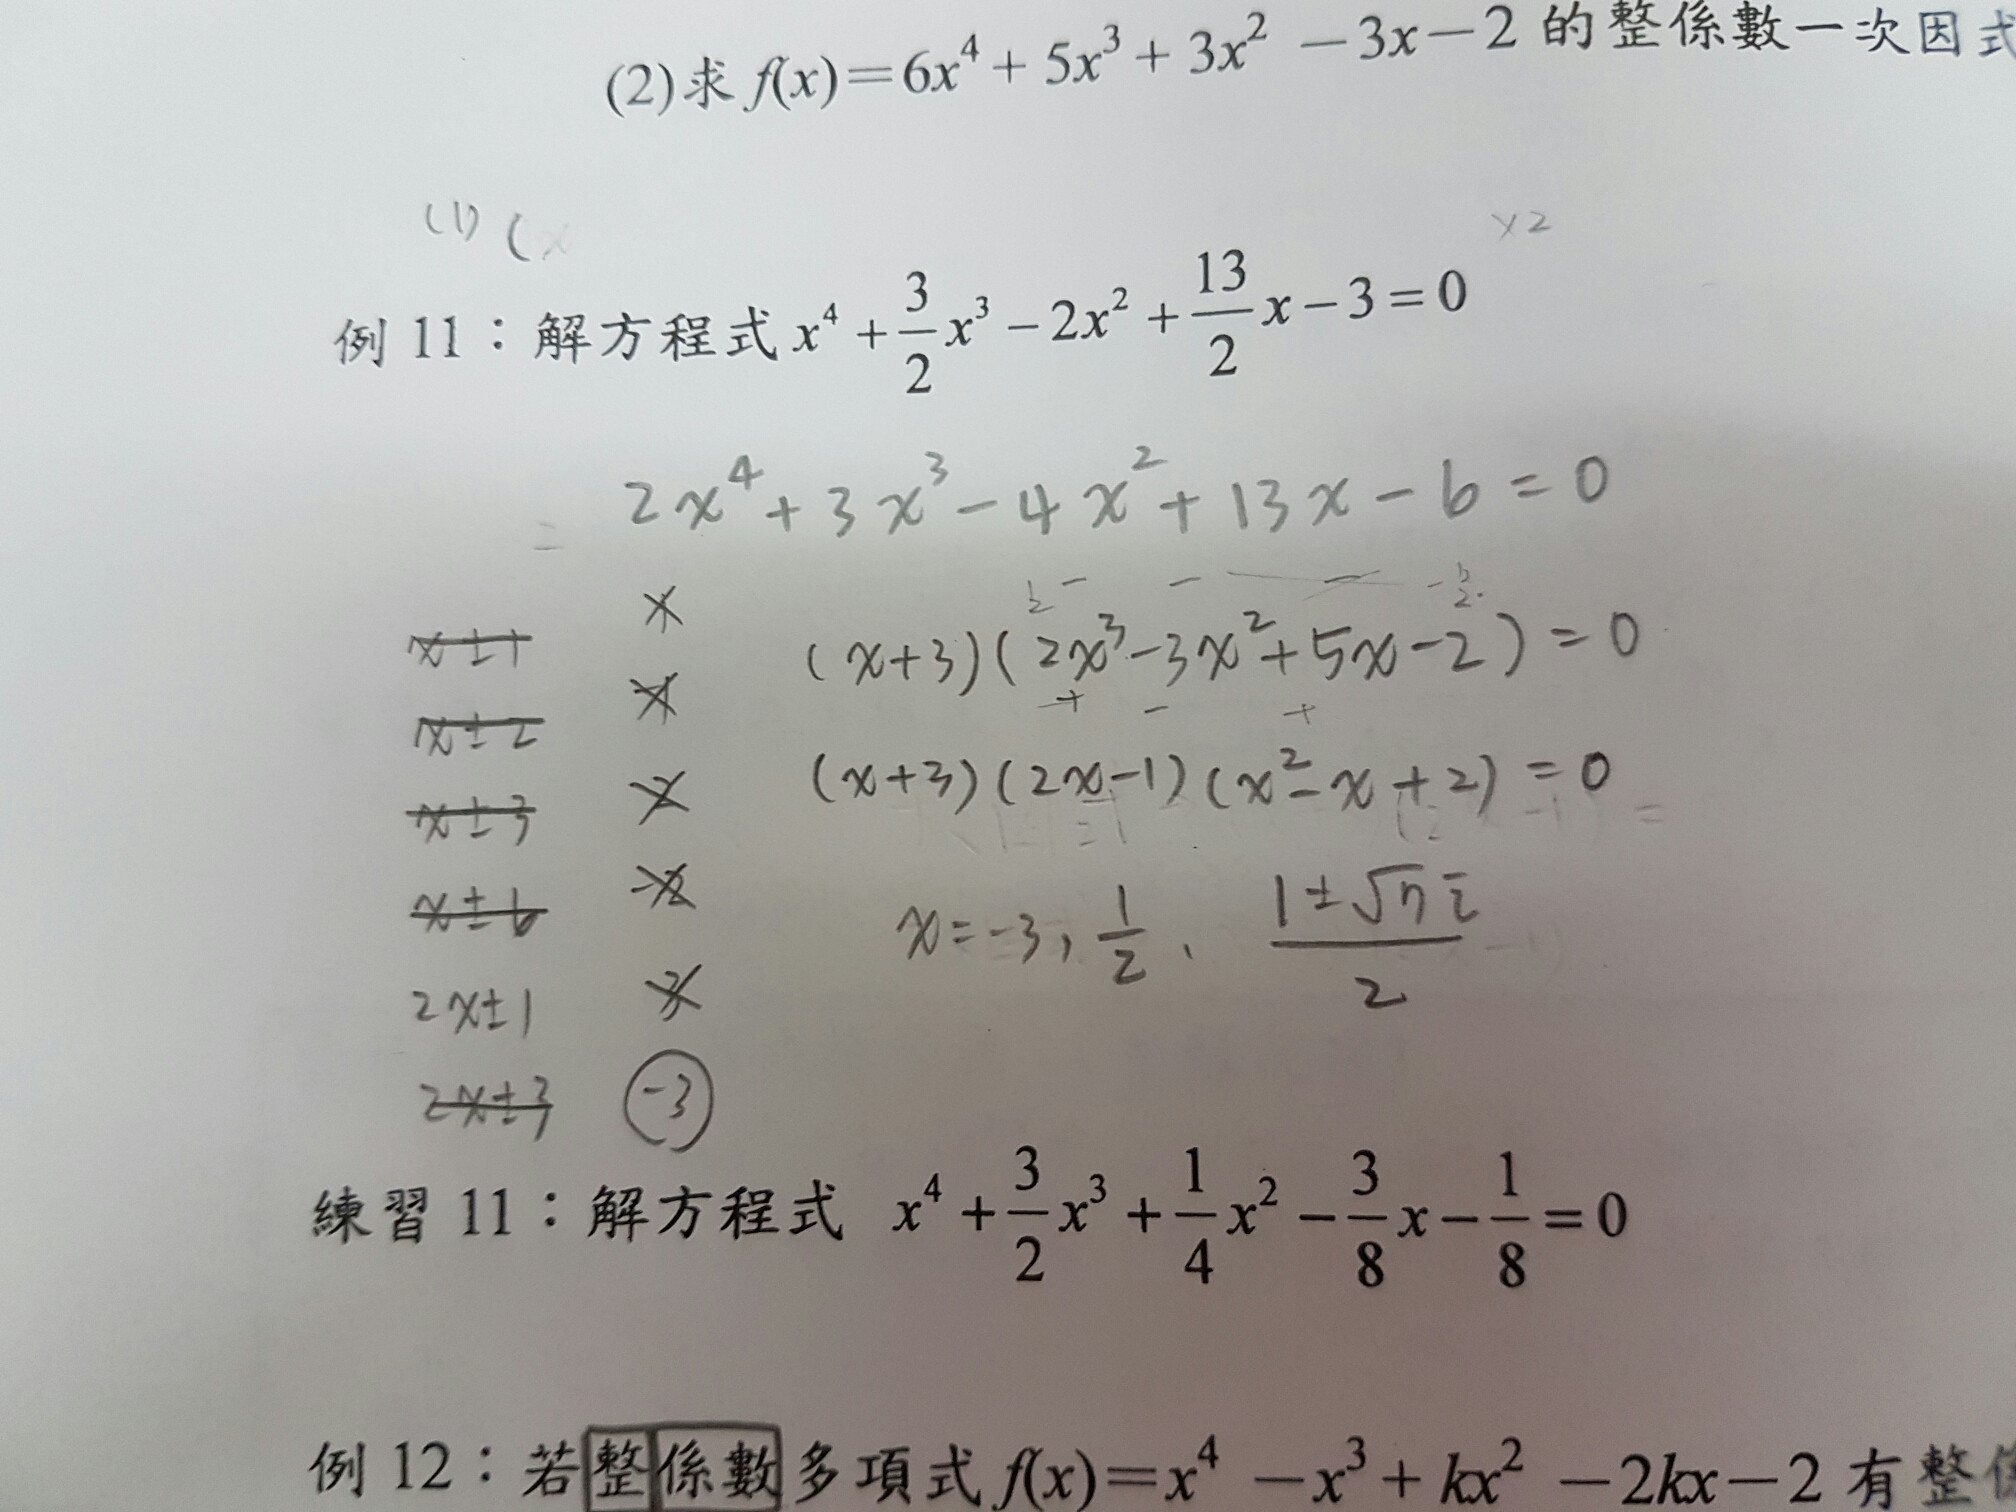 (2)求 f(x)=6x⁴+5x³+3x²-3x-2 的整係數一次因式
(1) (x
×2
例 11：解方程式 x⁴+\frac{3}{2}x³-2x²+\frac{13}{2}x-3=0
= 2x⁴+3x³-4x²+13x-6=0
x±1
(x+3)(2x³-3x²+5x-2)=0
x±2
x±3
(x+3)(2x-1)(x²-x+2)=0
x±6
x=-3, \frac{1}{2}, \frac{1±√7 i}{2}
2x±1
2x±3 -3
練習 11：解方程式 x⁴+\frac{3}{2}x³+\frac{1}{4}x²-\frac{3}{8}x-\frac{1}{8}=0
例 12：若整係數多項式 f(x)=x⁴-x³+kx²-2kx-2 有整係